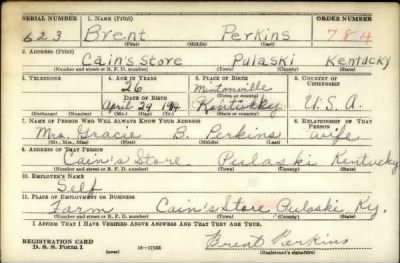 SERIAL NUMBER 1. NAME (Print) ORDER NUMBER
623 Brent Perkins 784
(First) (Middle) (Last)
2. ADDRESS (Print)
Cain's Store Pulaski Kentucky
(Number and street or R. F. D. number) (Town) (County) (State)
3. TELEPHONE 4. AGE IN YEARS 5. PLACE OF BIRTH 6. COUNTRY OF CITIZENSHIP
26 Mintonville
DATE OF BIRTH (Town or county)
April 29 1914 Kentucky U.S.A.
(Exchange) (Number) (Mo.) (Day) (Yr.) (State or country)
7. NAME OF PERSON WHO WILL ALWAYS KNOW YOUR ADDRESS 8. RELATIONSHIP OF THAT PERSON
Mrs. Gracie B. Perkins Wife
(Mr., Mrs., Miss) (First) (Middle) (Last)
9. ADDRESS OF THAT PERSON
Cain's Store Pulaski Kentucky
(Number and street or R. F. D. number) (Town) (County) (State)
10. EMPLOYER'S NAME
Self
11. PLACE OF EMPLOYMENT OR BUSINESS
Farm Cain's Store Pulaski Ky.
(Number and street or R. F. D. number) (Town) (County) (State)
I AFFIRM THAT I HAVE VERIFIED ABOVE ANSWERS AND THAT THEY ARE TRUE.
REGISTRATION CARD
D. S. S. Form 1 (over) 16-17105 Brent Perkins
(Registrant's signature)